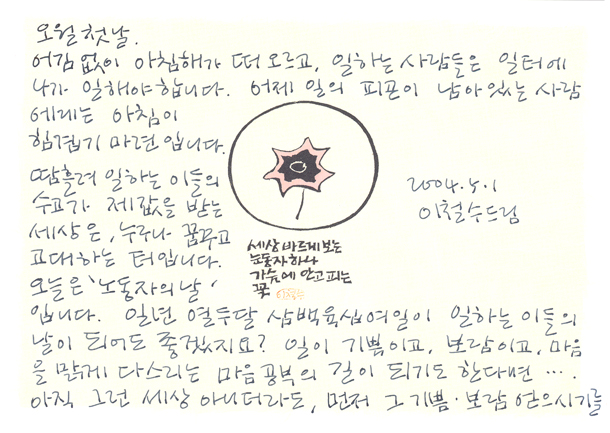 오월 첫날.
어김없이 아침해가 떠오르고, 일하는 사람들은 일터에
나가 일해야 합니다. 어제 일의 피곤이 남아있는 사람
에게는 아침이
힘겹기 마련입니다.
땀흘려 일하는 이들의
수고가 제값을 받는
세상은, 누구나 꿈꾸고
고대하는 터입니다.
오늘은 '노동자의 날'
입니다. 일년 열두달 삼백육십여일이 일하는 이들의
날이 되어도 좋겠지요? 일이 기쁨이고, 보람이고, 마음
을 맑게 다스리는 마음공부의 길이 되기도 한다면 ….
아직 그런 세상 아니더라도, 먼저 그 기쁨·보람 얻으시기를
세상 바르게 보는
눈동자 하나
가슴에 안고 피는
꽃
2004. 5. 1
이철수 드림